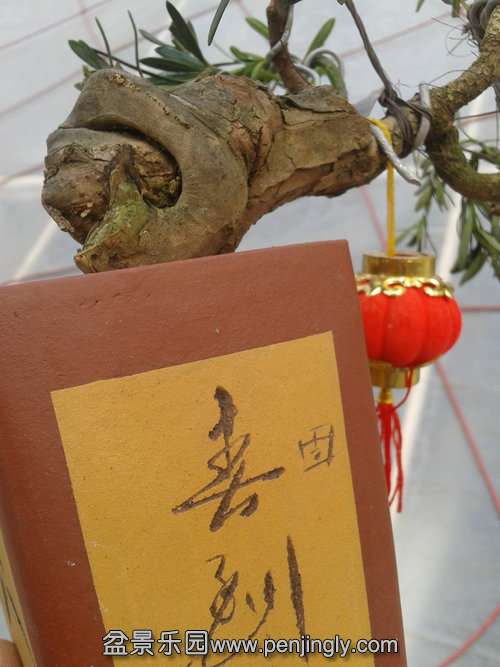 春
到
盆景乐园www.penjingly.com